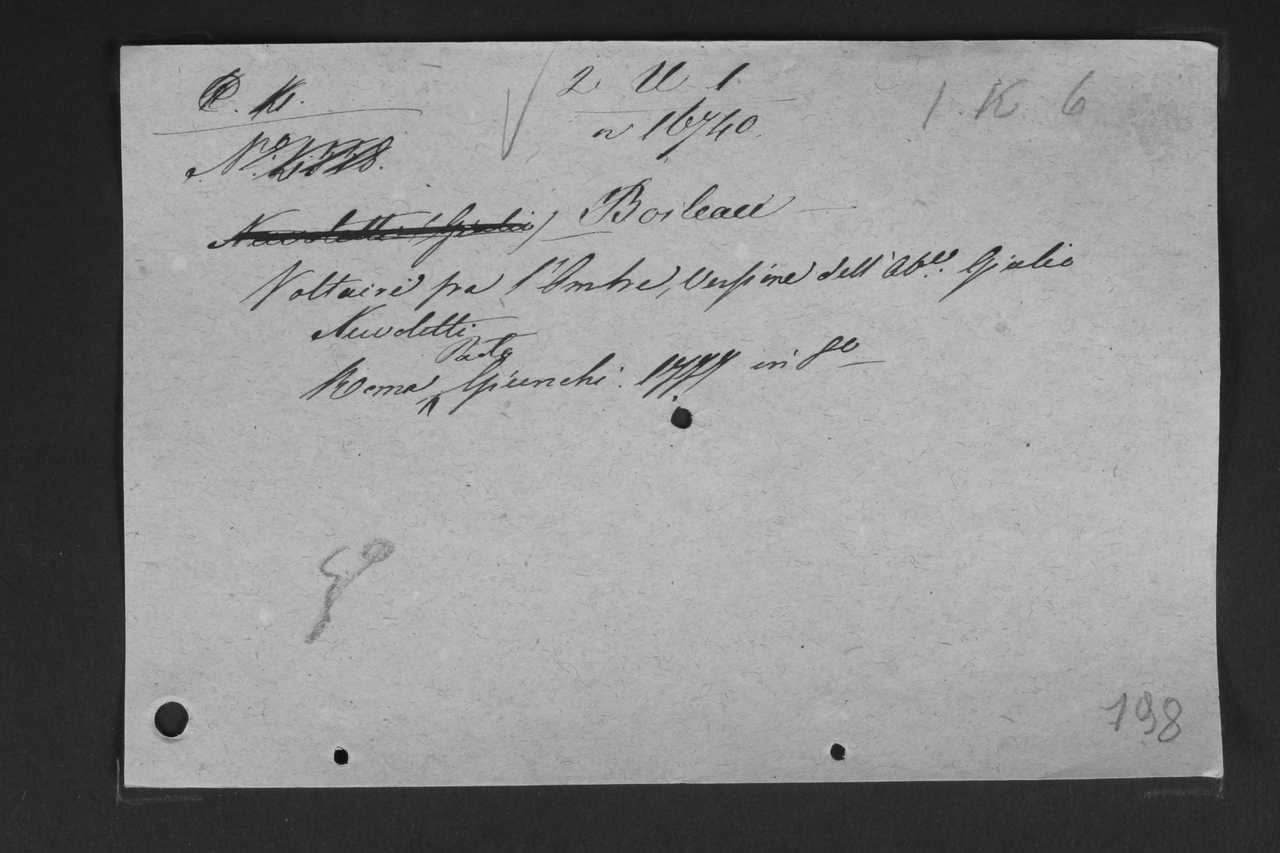 2 U 1.
n 16740.
1 K 6
N.º
Nuvoletti (Giulio) Boileau
Voltaire fra l'Ombre, Versione dell'Ab.e Giulio
Nuvoletti
Roma, Giunchi. 1777 in 8º
198